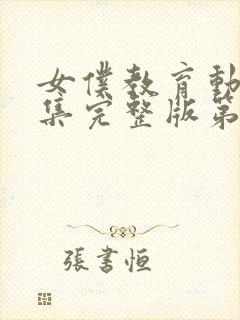 女僕教育動
集完整版第
張書恒